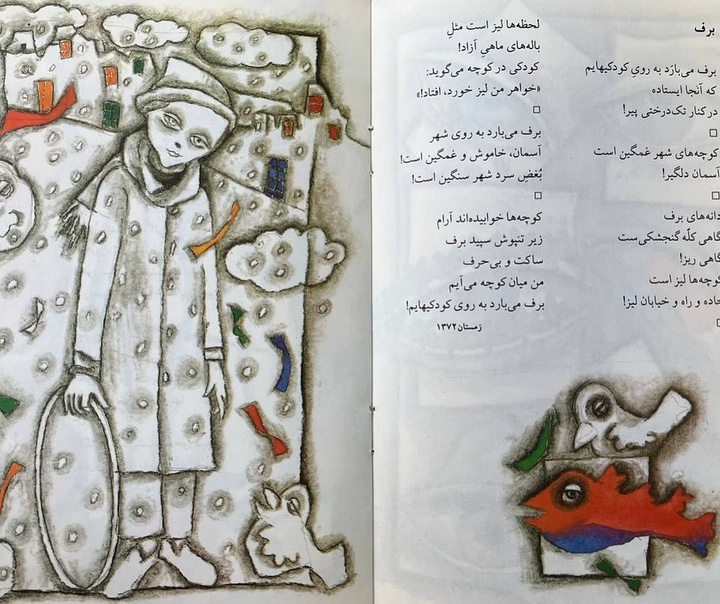 برف
برف می‌بارَد به رویِ کودکیهایم
که آنجا ایستاده
در کنار تک‌درختی پیر!
□
کوچه‌های شهر غمگین است
آسمان دلگیر!
□
دانه‌های برف
گاهی کلّه گنجشکی‌ست
گاهی ریز!
کوچه‌ها لیز است
و راه و خیابان لیز!
□
لحظه‌ها لیز است مثلِ
باله‌های ماهیِ آزاد!
کودکی در کوچه می‌گوید:
«خواهر من لیز خورد، افتاد!»
□
برف می‌بارد به روی شهر
آسمان، خاموش و غمگین است!
بُغضِ سرد شهر سنگین است!
□
کوچه‌ها خوابیده‌اند آرام
زیر تنپوش سپید برف
ساکت و بی‌حرف
من میان کوچه می‌آیم
برف می‌بارد به روی کودکیهایم!
زمستان ۱۳۷۲